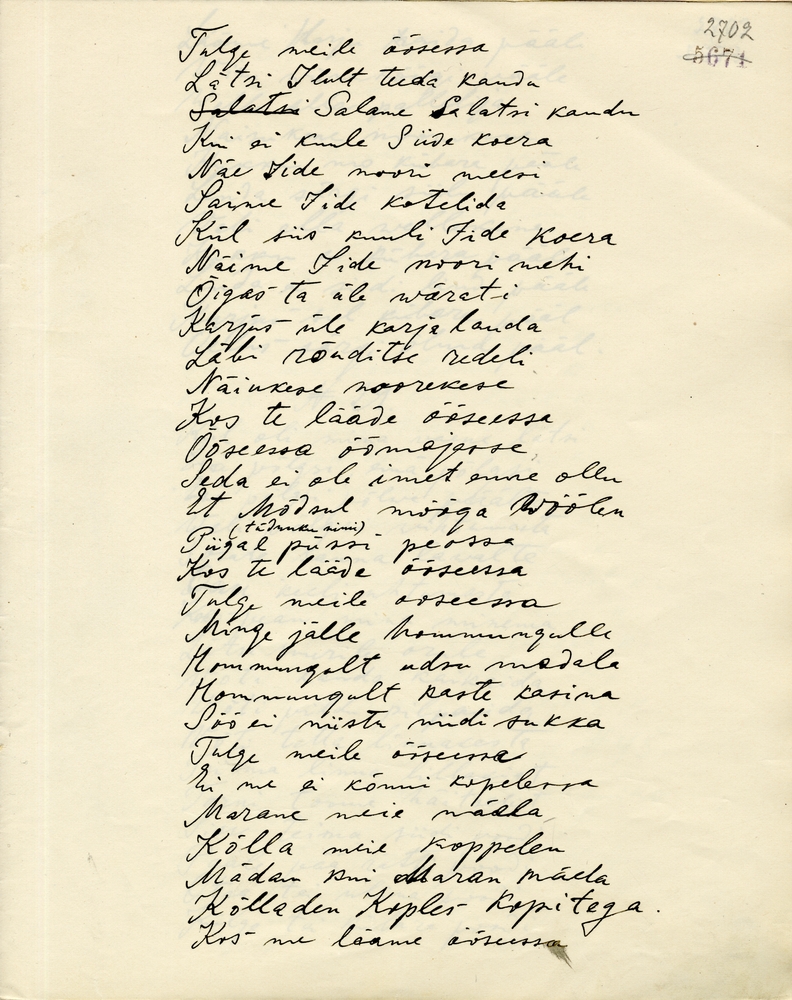 2702
5671
Tulge meile öösessa
Lätsi Ilult teeda kaudu
Salatsi Salame Salatsi kaudu
Kui ei kuule Siide koera
Näe Iide noori meesi
Saime Iide kotelida
Kül siis kuuli Iide koera
Näime Iide noori mehi
Õigas ta üle wärati
Karjus üle karjalauda
Läbi rõuditse redeli
Näiukese noorekese
Kos te lääde ööseessa
Ööseessa öömajasse
Seda ei ole imet enne ollu
Et Mõdsul mõõga wöölen
(tüdruku nimi)
Piigal püssi peossa
Kos te lääde ööseessa
Tulge meile ooseessa
Minge jälle hommungulle
Hommungult udsu madala
Hommungult kaste kasina
Söö ei niista niidi sukka
Tulge meile ööseessa
Ei me ei kõnni kopelessa
Marane meie mäela
Kõlla meie koppelen
Mädan kui Maran mäela
Kõlladen Koples kopitega.
Kos me lääme ööseessa